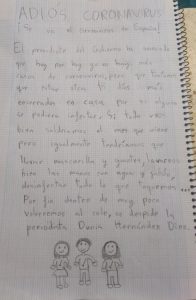 ADIÓS CORONAVIRUS
[Se va el coronavirus de España]
El presidente del Gobierno ha anunciado
que hoy por hoy ya no hay más
casos de coronavirus, pero que tenemos
que estar otros 15 días más
encerrados en casa por si alguien
se pudiera infectar. Si todo va
bien saldríamos el mes que viene
pero igualmente tendríamos que
llevar mascarilla y guantes, lavarnos
bien las manos con agua y jabón,
desinfectar todo lo que toquemos...
Por fin dentro de muy poco
volveremos al cole, se despide la
periodista Dunia Hernández Díez.